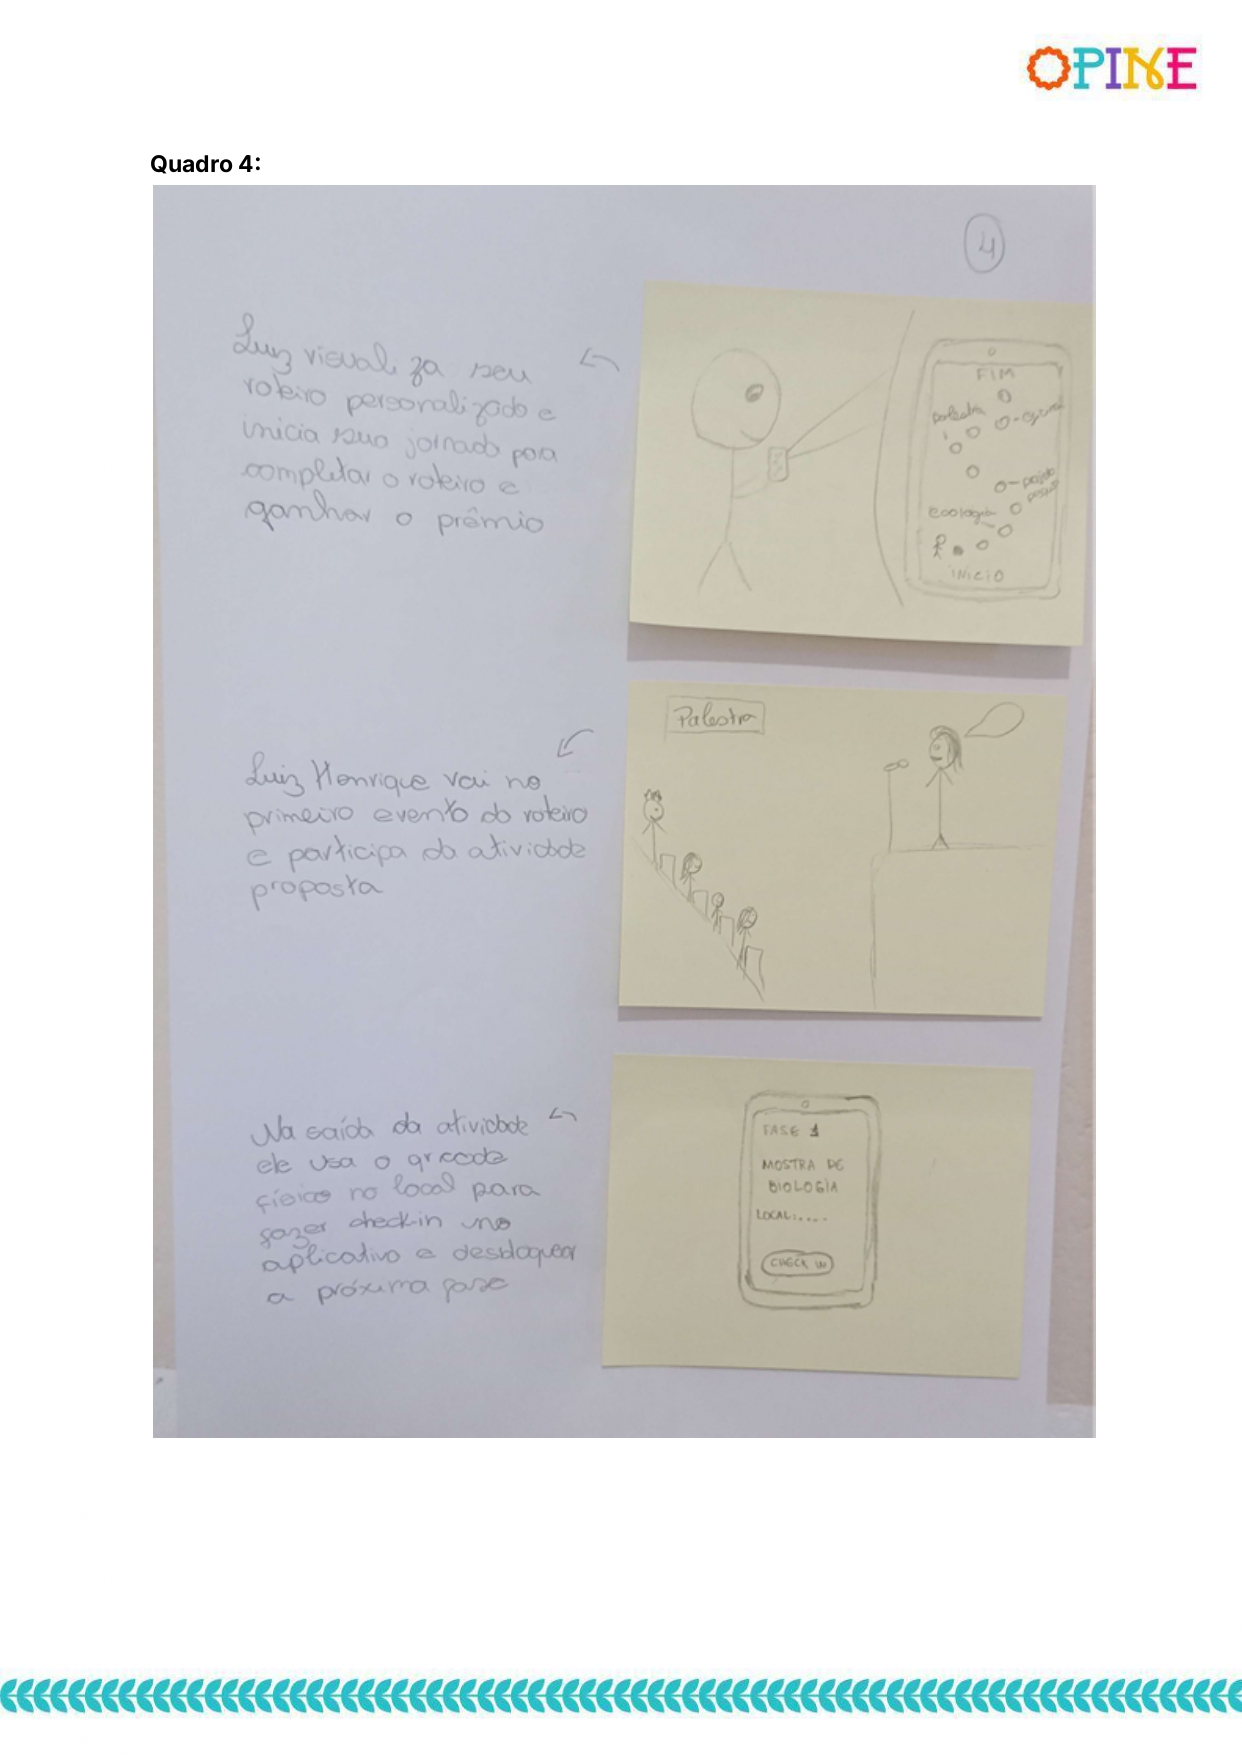 OPINE
Quadro 4:
4
Luiz visualiza seu
roteiro personalizado e
inicia sua jornada para
completar o roteiro e
ganhar o prêmio
FIM
palestra
zoologia
INICIO
Luiz Henrique vai no
primeiro evento do roteiro
e participa da atividade
proposta
Palestra
Na saída da atividade
ele usa o qrcode
físico no local para
fazer check-in no
aplicativo e desbloquear
a próxima fase
FASE 1
MOSTRA DE
BIOLOGIA
LOCAL:....
CHECK IN